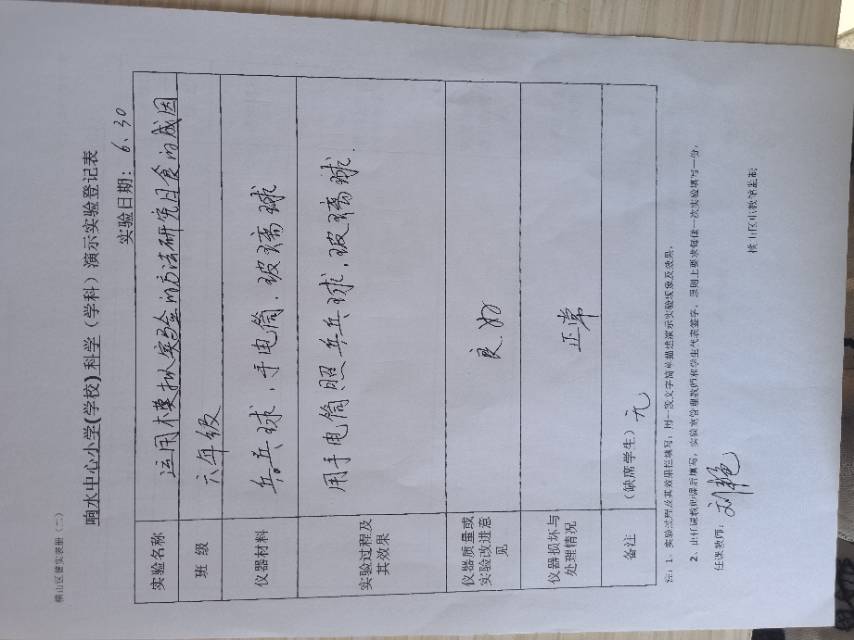 横山区普实表册（二）
响水中心小学(学校)科学（学科）演示实验登记表
实验日期：6.30
实验名称 运用模拟实验的方法研究日食的成因
班 级 六年级
仪器材料 乒乓球，手电筒，玻璃球
实验过程及
其效果 用手电筒照乒乓球，玻璃球.
仪器质量或
实验改进意
见 良好
仪器损坏与
处理情况 正常
备注 （缺席学生）无
注：1、实验过程及其效果栏填写：用一段文字简单描述演示实验现象及效果。
2、由任课教师课后填写，实验室管理教师和学生代表签字，原则上要求每做一次实验填写一份。
任课教师：刘艳
横山区电教馆监制